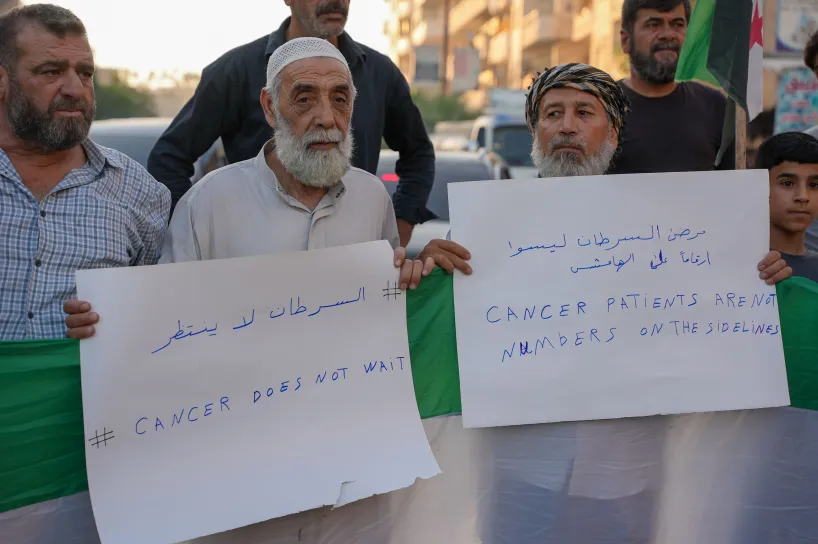 # السرطان لا ينتظر
# CANCER DOES NOT WAIT
مرضى السرطان ليسوا
ارقاماً على الهامش
CANCER PATIENTS ARE NOT
NUMBERS ON THE SIDELINES